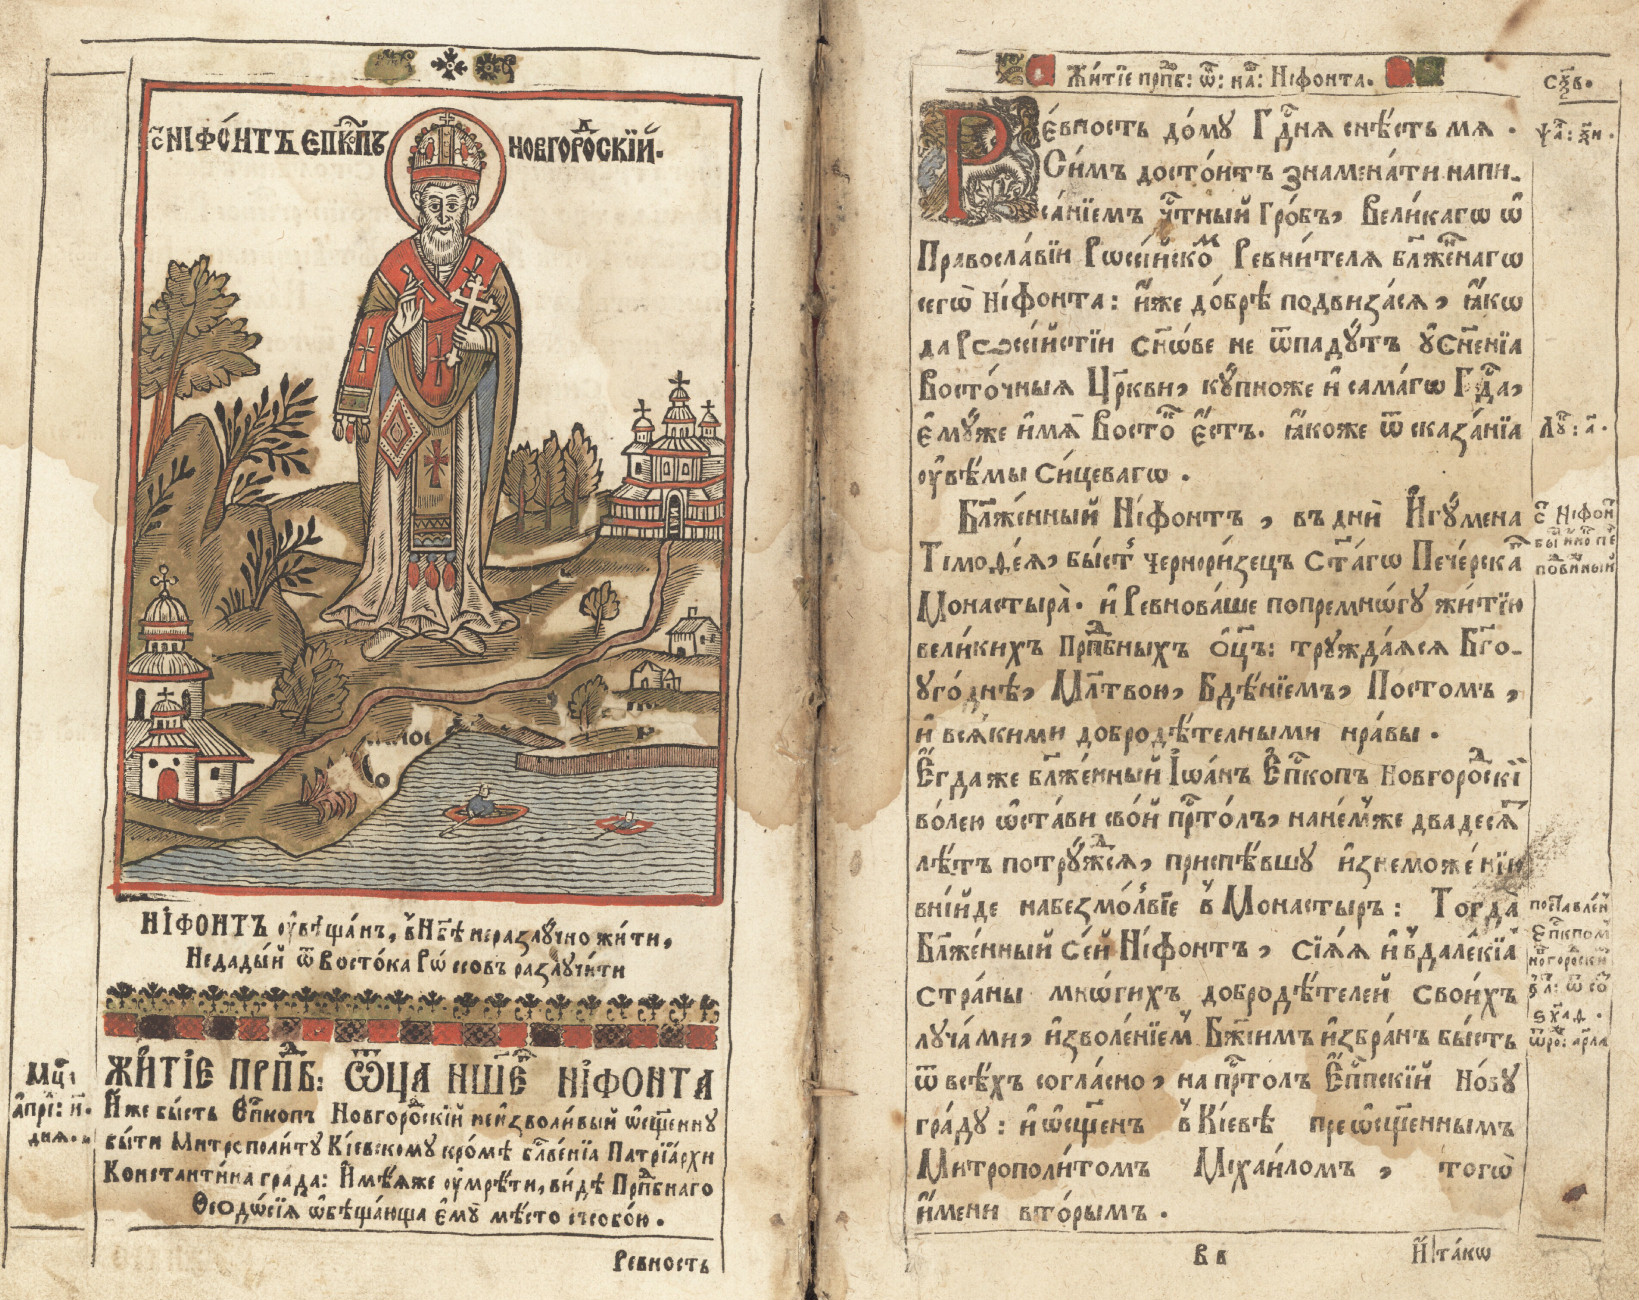 С҃ НІФО́НТЪ ЕП҃КПЪ НОВГОРОⷣСКІЙ.
НІ́ФОНТЪ ᲂу҆вѣща́нъ, в̾ Нб҃ѣ неразлꙋ́чно жи́ти,
Недады́й ѿ Восто́ка Рѡ́ссовъ разлꙋчи́ти
Мцⷭ҇а
а҆прі́: и҃.
дня.
ЖИТІЕ ПРПⷣБ: ѾЦА НШ҃Е НІ́ФОНТА
И҆́же бы́сть Еп҃копъ Новгороⷣскій неизво́ливый ѡ҆сщ҃еннꙋ
бы́ти Митрополи́тꙋ Кі́евскомꙋ кро́мѣ бл҃ве́нїѧ Патрїа́рхи
Константи́на гра́да: И҆мѣ́ѧже ᲂу҆мрѣ́ти, ви́дѣ Прпⷣбнаго
Ѳеодѡ́сїѧ ѡ҆бѣща́юща є҆мꙋ̀ мѣ́сто съ собо́ю.
Ре́вность
Житїе прпⷣб: ѿ: на: Ні́фонта.
сѯ҃в.
Ре́вность до́мꙋ Гдⷭ҇нѧ снѣ́сть мѧ.
Си́мъ досто́итъ знамена́ти напи-
са́нїемъ чтⷭ҇ный Гро́бъ, Вели́кагѡ ѡ҆
Правосла́вїи Рѡссі́йскоⷨ Ревни́телѧ бл҃же́ннагѡ
сегѡ̀ Ні́фонта: и҆́же до́брѣ подвиза́сѧ, ꙗ҆́кѡ
да Рѡссі́йстїи сн҃ове не ѿпадꙋ́тъ ᲂу҆сн҃енїѧ
Восто́чныѧ Цр҃кви, кꙋ́пноже и҆ сама́гѡ Гдⷭ҇а,
є҆мꙋ́же и҆́мѧ Восто́ⷦ є҆́сть. ꙗ҆́коже ѿ сказа́нїѧ
ᲂу҆вѣ́мы си́цевагѡ.
Бл҃же́нный Ні́фонтъ, въ дни̑ И҆гꙋ́мена
Тїмоѳе́ѧ, бы́сть черноризецъ ст҃а́гѡ Пече́рскаⷢ
Монастырѧ̀. и҆ Ревнова́ше попремно́гꙋ житїю
вели́кихъ Прпⷣбныхъ ѻ҆ц҃ъ: трꙋжда́ѧсѧ Бг҃о-
ᲂуго́днѣ, Мл҃твою, Бдѣ́нїемъ, Посто́мъ,
и҆ всѧ́кими добродѣ́телными нра́вы.
Е҆гда́ же бл҃же́нный І҆ѡа́ннъ Еп҃копъ Новгороⷣскі
во́лею ѡ҆ста́ви сво́й прⷭ҇то́лъ, нане́мже двадесѧⷮ
лѣ́тъ потрꙋ́ждⷭ҇сѧ, приспѣ́вшꙋ и҆знеможе́нїю
вни́йде на безмо́лвїе в̾ Монасты́ръ: Тогда̀
Бл҃же́нный се́й Ні́фонтъ, сїѧ́ѧ и҆ в̾ дале́кїѧ
страны̀ мно́гихъ добродѣ́телей свои́хъ
лꙋча́ми, и҆зволе́нїем̾ Бж҃їимъ и҆збра́нъ бы́сть
ѿ всѣ́хъ согла́сно, на прⷭ҇то́лъ Еп҃пскїй Но́вꙋ
гра́дꙋ: и҆ ѡ҆сщ҃е́нъ в̾ Кі́евѣ преѡсщ҃е́ннымъ
Митрополи́томъ Міхаи́ломъ, того̀
и҆́мени вторы́мъ.
Ѱа: ѯ҃и.
Лꙋⷦ: а҃.
с҃ Ні́фоⷩ
бы́
поⷣви́ный
поⷭ҇та́вле́й
Еп҃кпом
новгороⷣски
В в
И҆ та́кѡ